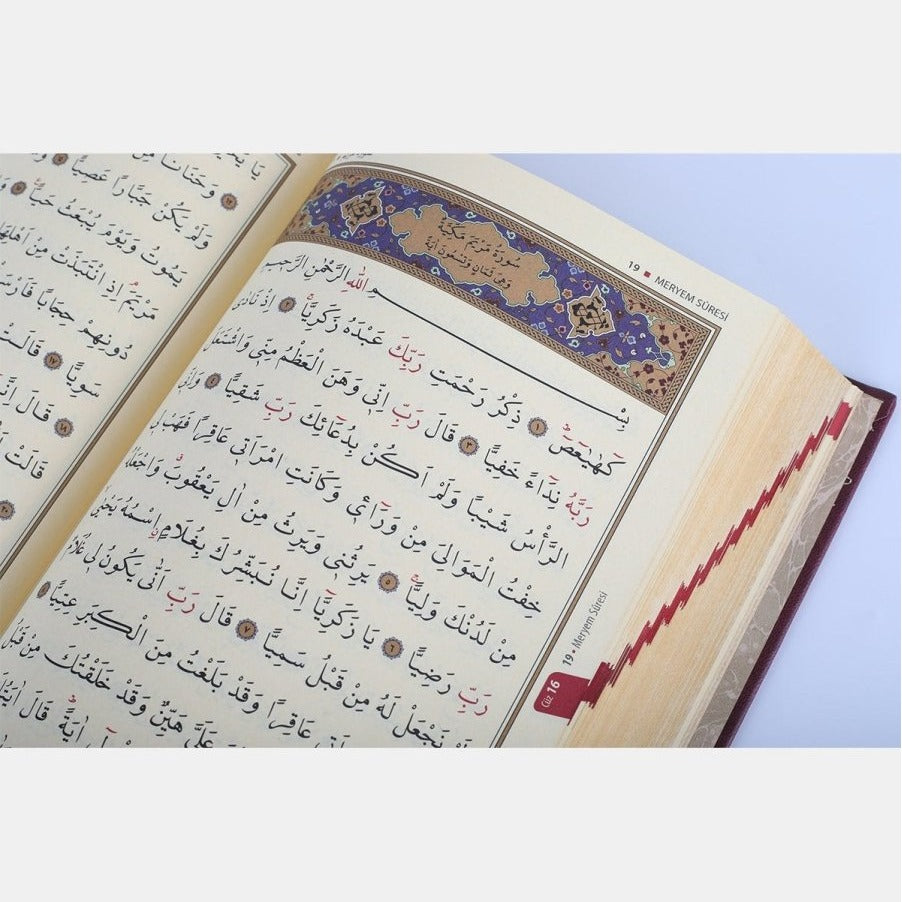 19 ▪ MERYEM SÛRESİ
سُورَةُ مَرْيَمَ مَكِّيَّةٌ
وَهِيَ ثَمَانٍ وَتِسْعُونَ اٰيَةً
بِسْــــــمِ اللّٰهِ الرَّحْمٰنِ الرَّحٖيمِ
كٓهٰيٰعٓصٓ ۚ ﴿١﴾ ذِكْرُ رَحْمَتِ رَبِّكَ عَبْدَهُ زَكَرِيَّا ۚ ﴿٢﴾ اِذْ نَادٰى
رَبَّهُ نِدَٓاءً خَفِيًّا ﴿٣﴾ قَالَ رَبِّ اِنّٖى وَهَنَ الْعَظْمُ مِنّٖى وَاشْتَعَلَ
الرَّأْسُ شَيْبًا وَلَمْ اَكُنْ بِدُعَٓائِكَ رَبِّ شَقِيًّا ﴿٤﴾ وَاِنّٖى
خِفْتُ الْمَوَالِىَ مِنْ وَرَٓائٖى وَكَانَتِ امْرَاَتٖى عَاقِرًا فَهَبْ لٖى
مِنْ لَدُنْكَ وَلِيًّا ۙ ﴿٥﴾ يَرِثُنٖى وَيَرِثُ مِنْ اٰلِ يَعْقُوبَ وَاجْعَلْهُ
رَبِّ رَضِيًّا ﴿٦﴾ يَا زَكَرِيَّٓا اِنَّا نُبَشِّرُكَ بِغُلَامٍ ۨاسْمُهُ يَحْيٰى
لَمْ نَجْعَلْ لَهُ مِنْ قَبْلُ سَمِيًّا ﴿٧﴾ قَالَ رَبِّ اَنّٰى يَكُونُ لٖى غُلَامٌ
عَاقِرًا وَقَدْ بَلَغْتُ مِنَ الْكِبَرِ عِتِيًّا ﴿٨﴾
عَلَىَّ هَيِّنٌ وَقَدْ خَلَقْتُكَ مِنْ قَبْلُ
اٰيَةً ؕ قَالَ اٰيَتُكَ
Cüz 16
19 • Meryem Sûresi
وَحَنَانًا
وَلَمْ يَكُنْ جَبَّارًا عَصِيًّا
يَمُوتُ وَيَوْمَ يُبْعَثُ حَيًّا
مَرْيَمَ اِذِ انْتَبَذَتْ مِنْ اَهْلِهَا
دُونِهِمْ حِجَابًا فَاَرْسَلْنَا
سَوِيًّا ﴿١٧﴾ قَالَتْ
﴿١٨﴾ قَالَ اِنَّمَا
قَالَتْ